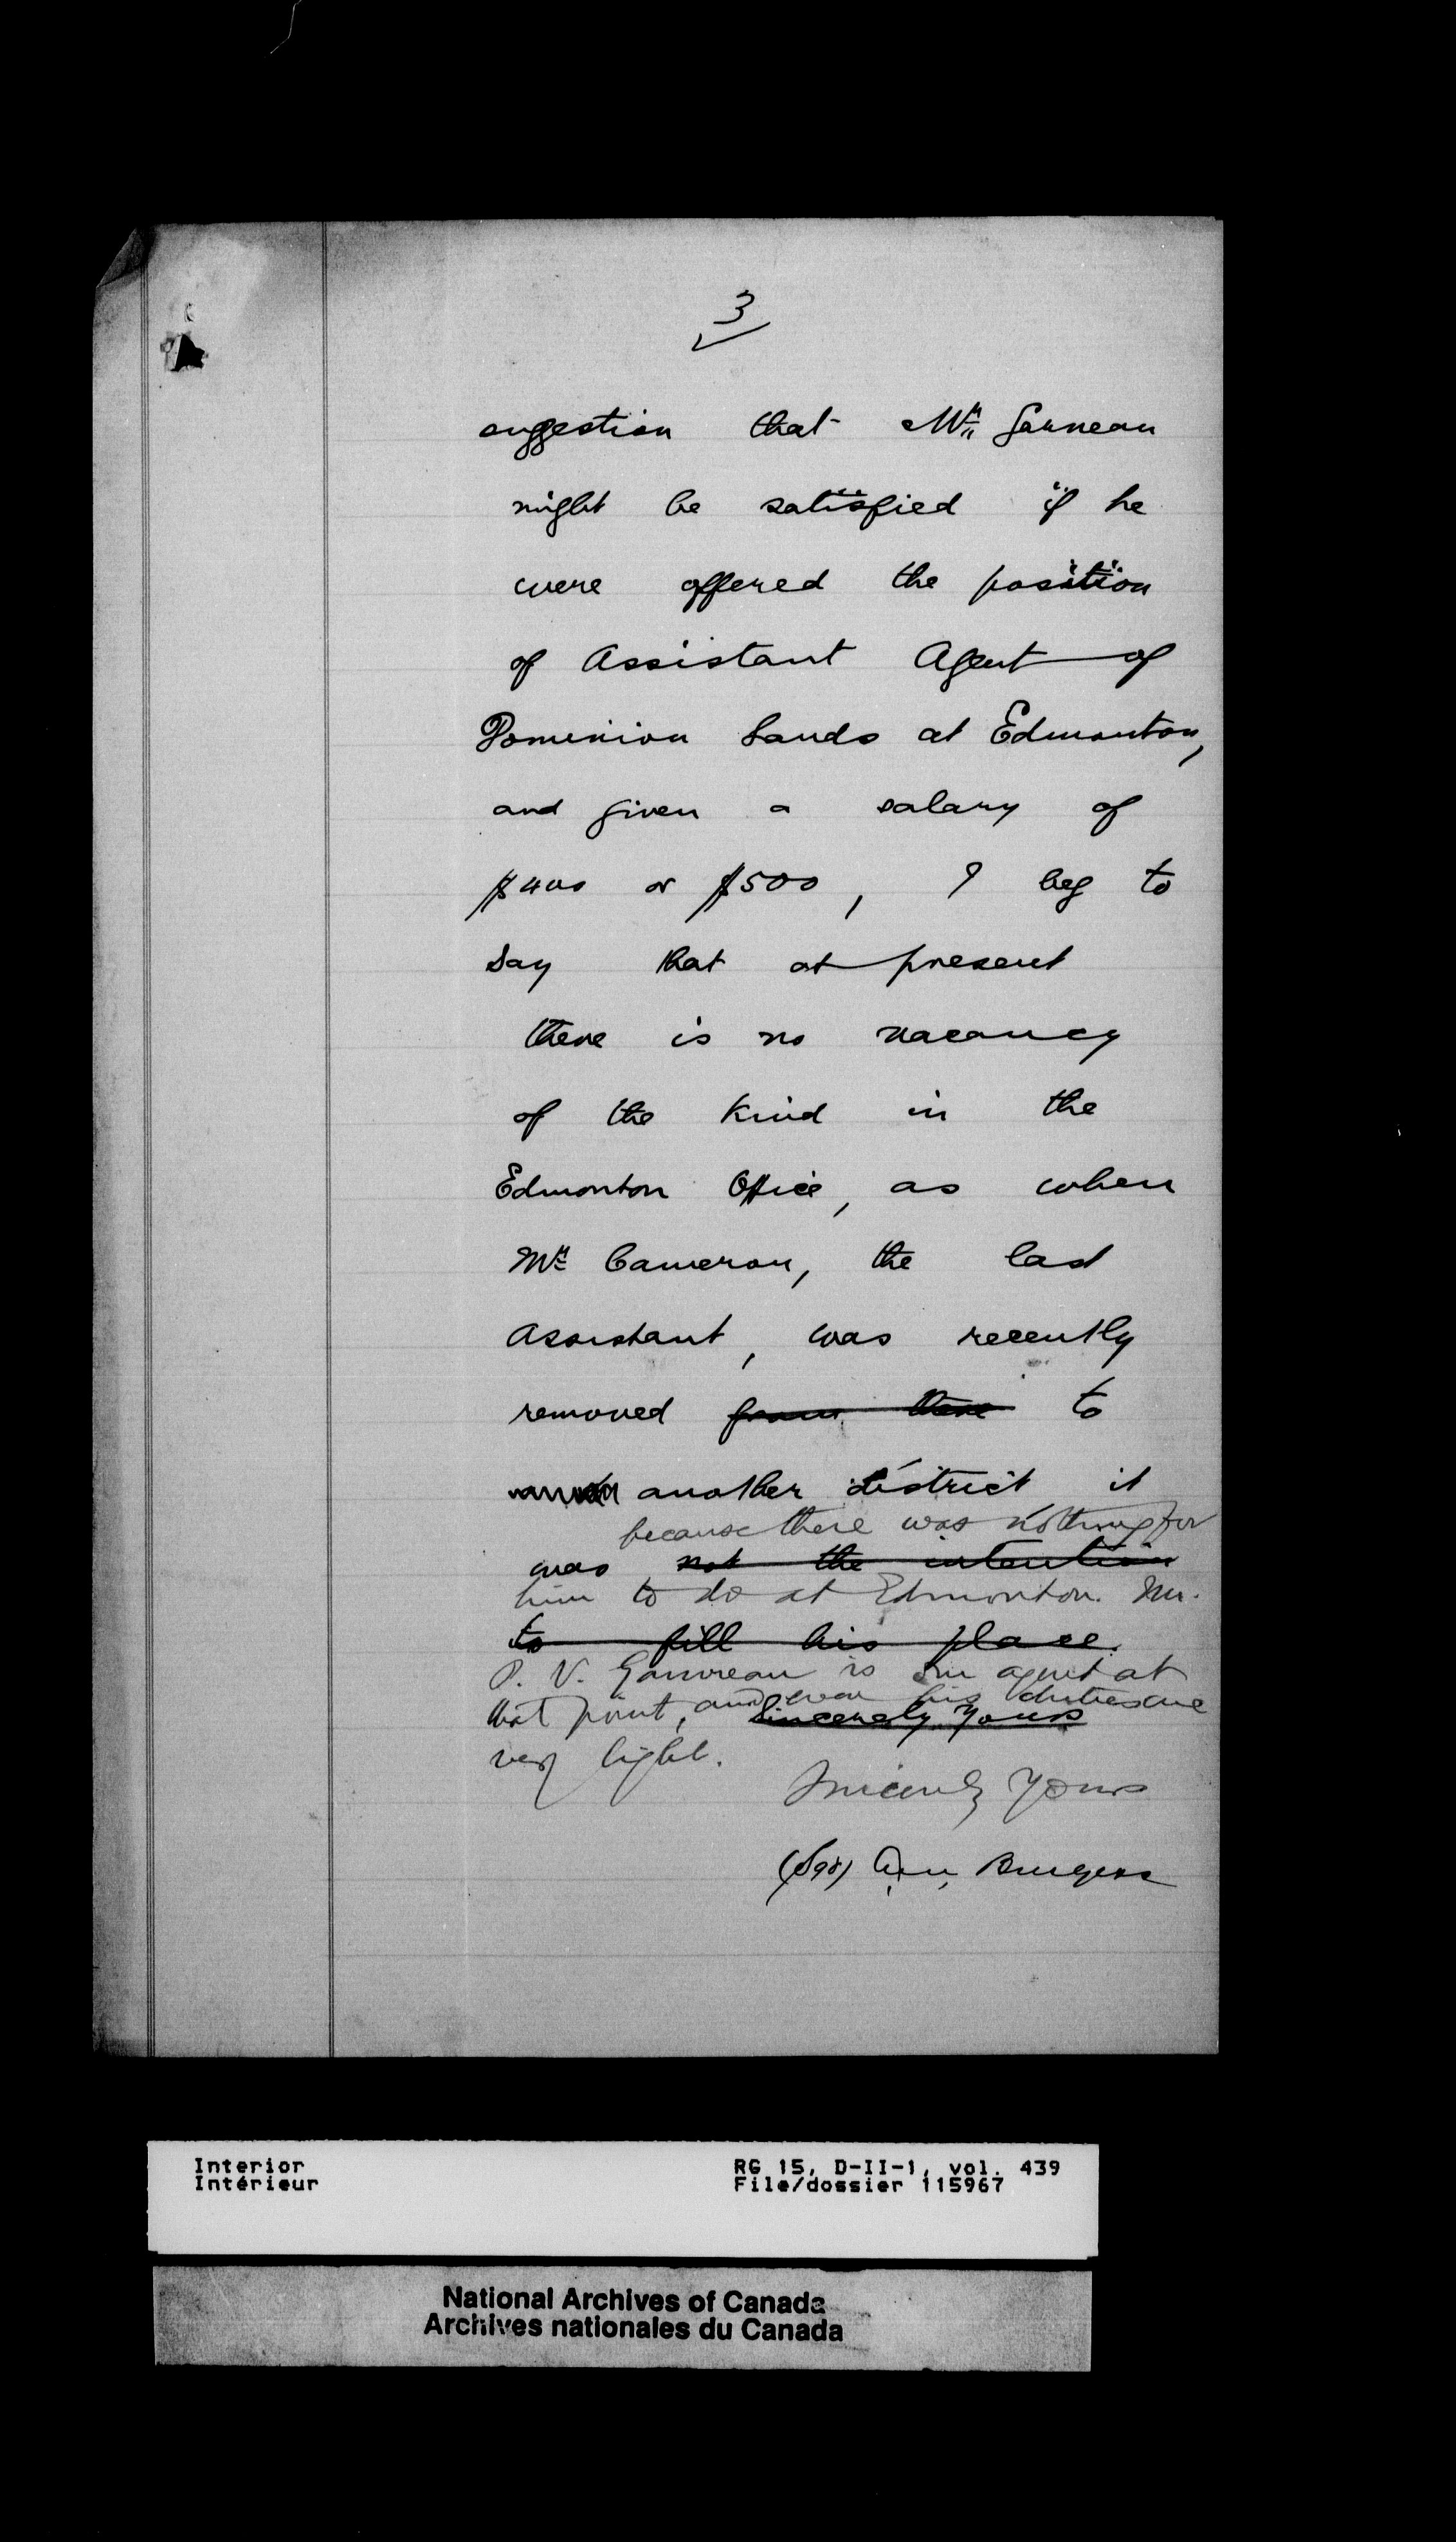 3
suggestion that Mr Garneau
might be satisfied if he
were offered the position
of Assistant Agent of
Dominion Lands at Edmonton,
and given a salary of
$400 or $500, I beg to
say that at present
there is no vacancy
of the kind in the
Edmonton Office, as when
Mr Cameron, the last
Assistant, was recently
removed from there to
another district it
because there was nothing for
was not the intention
him to do at Edmonton. Mr.
to fill his place.
P. V. Gauvreau is our agent at
that point, and even his duties are
Sincerely Yours
very light.
Sincerely Yours
(Sgd) Burgess
Interior RG 15, D-II-1, vol. 439
Intérieur File/dossier 115967
National Archives of Canada
Archives nationales du Canada